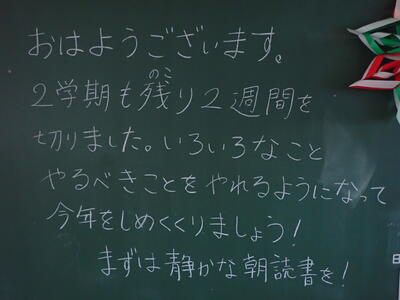 おはようございます。
2学期も残り2週間を
のこ
切りました。いろいろなこと
やるべきことをやれるようになって
今年をしめくくりましょう!
まずは静かな朝読書を!
日